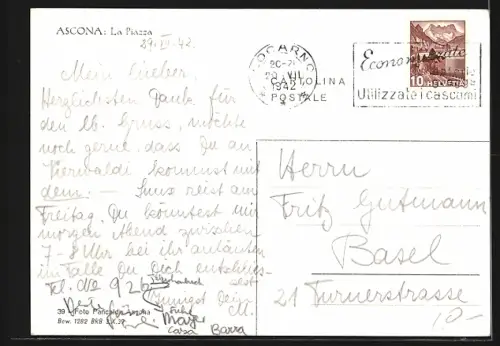 ASCONA: La Piazza
29. VII. 42.
Mein Lieber.
Herzlichsten Dank für
den lb. Gruss, möchte
noch gerne, dass Du an
kommst mit
dem. — reist am
Freitag. Du könntest mir
morgen Abend zwischen
7-8 Uhr bei ihr anläuten
im Falle Du Dich entschlies-
sest
Tel. No 926
M.
Mayer
Casa Barra
39 Foto Pancaldi Ascona
Bew. 1282 BRB 3.X.39
LOCARNO
20-
29.VII.
1942
CARTOLINA
POSTALE
Utilizzate i cascami
10 HELVETIA
Herrn
Fritz Gutmann
Basel
21 Turnerstrasse
10.-